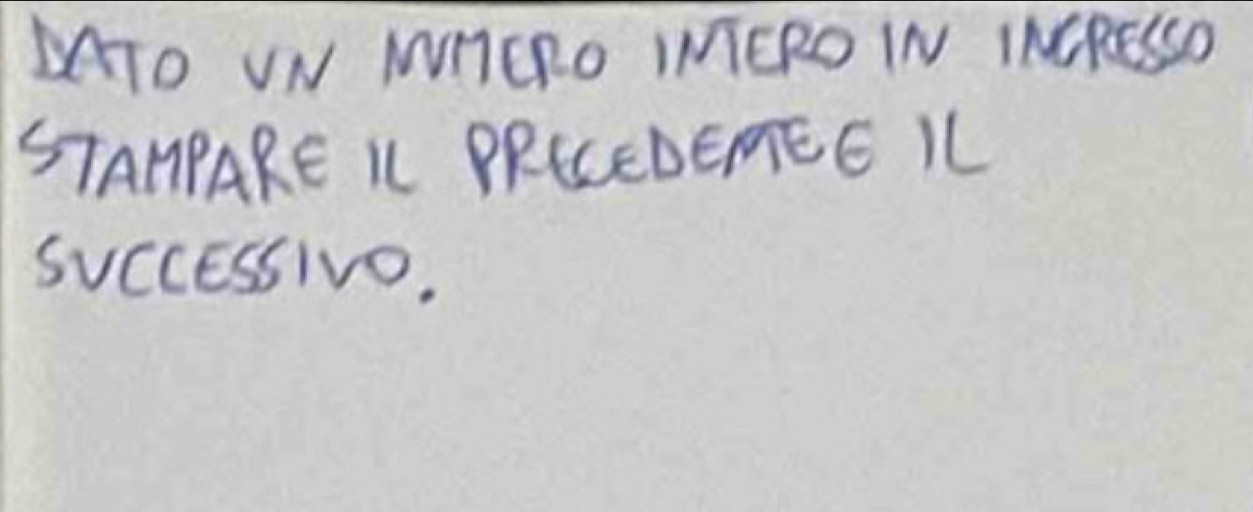 DATO UN NUMERO INTERO IN INGRESSO
STAMPARE IL PRECEDENTE E IL
SUCCESSIVO.